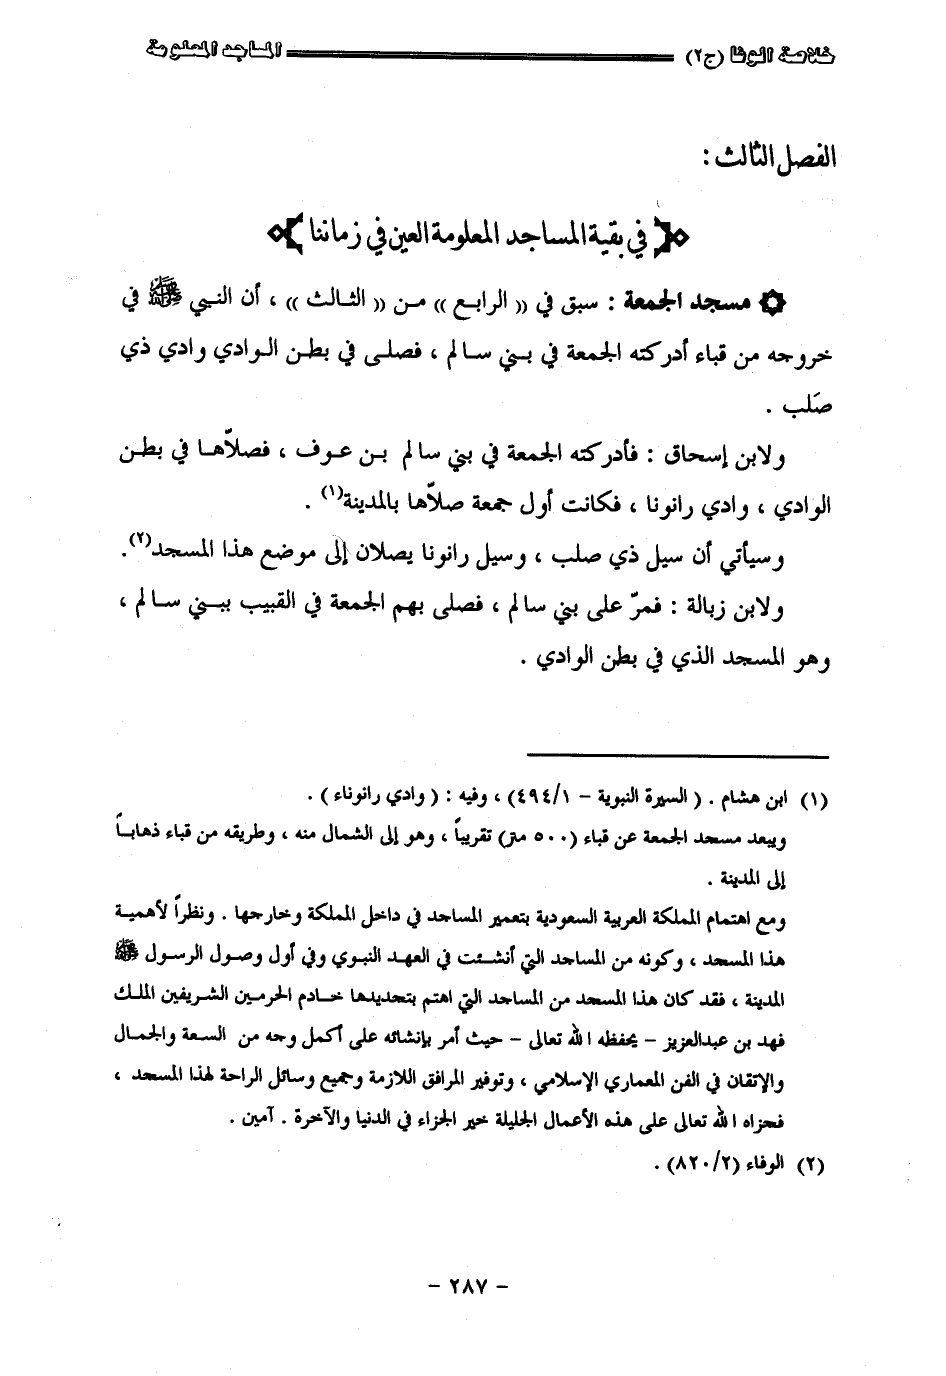 خلاصة الوفا (ج٢) المساجد المعلومة
الفصل الثالث :
﴿ في بقية المساجد المعلومة العين في زماننا ﴾
۞ مسجد الجمعة : سبق في (( الرابع )) من (( الثالث )) ، أن النبي ﷺ في
خروجه من قباء أدركته الجمعة في بني سالم ، فصلى في بطن الوادي وادي ذي
صَلب .
ولابن إسحاق : فأدركته الجمعة في بني سالم بن عوف ، فصلاّها في بطن
الوادي ، وادي رانونا ، فكانت أول جمعة صلاّها بالمدينة(١) .
وسيأتي أن سيل ذي صلب ، وسيل رانونا يصلان إلى موضع هذا المسجد(٢).
ولابن زبالة : فمرّ على بني سالم ، فصلى بهم الجمعة في القبيب ببني سالم ،
وهو المسجد الذي في بطن الوادي .
(١) ابن هشام . ( السيرة النبوية – ٤٩٤/١) ، وفيه : ( وادي رانوناء ) .
ويبعد مسجد الجمعة عن قباء (٥٠٠ متر) تقريباً ، وهو إلى الشمال منه ، وطريقه من قباء ذهاباً
إلى المدينة .
ومع اهتمام المملكة العربية السعودية بتعمير المساجد في داخل المملكة وخارجها . ونظراً لأهمية
هذا المسجد ، وكونه من المساجد التي أنشئت في العهد النبوي وفي أول وصول الرسول ﷺ
المدينة ، فقد كان هذا المسجد من المساجد التي اهتم بتجديدها خادم الحرمين الشريفين الملك
فهد بن عبدالعزيز – يحفظه الله تعالى – حيث أمر بإنشائه على أكمل وجه من السعة والجمال
والإتقان في الفن المعماري الإسلامي ، وتوفير المرافق اللازمة وجميع وسائل الراحة لهذا المسجد ،
فجزاه الله تعالى على هذه الأعمال الجليلة خير الجزاء في الدنيا والآخرة . آمين .
(٢) الوفاء (٨٢٠/٢) .
– ٢٨٧ –